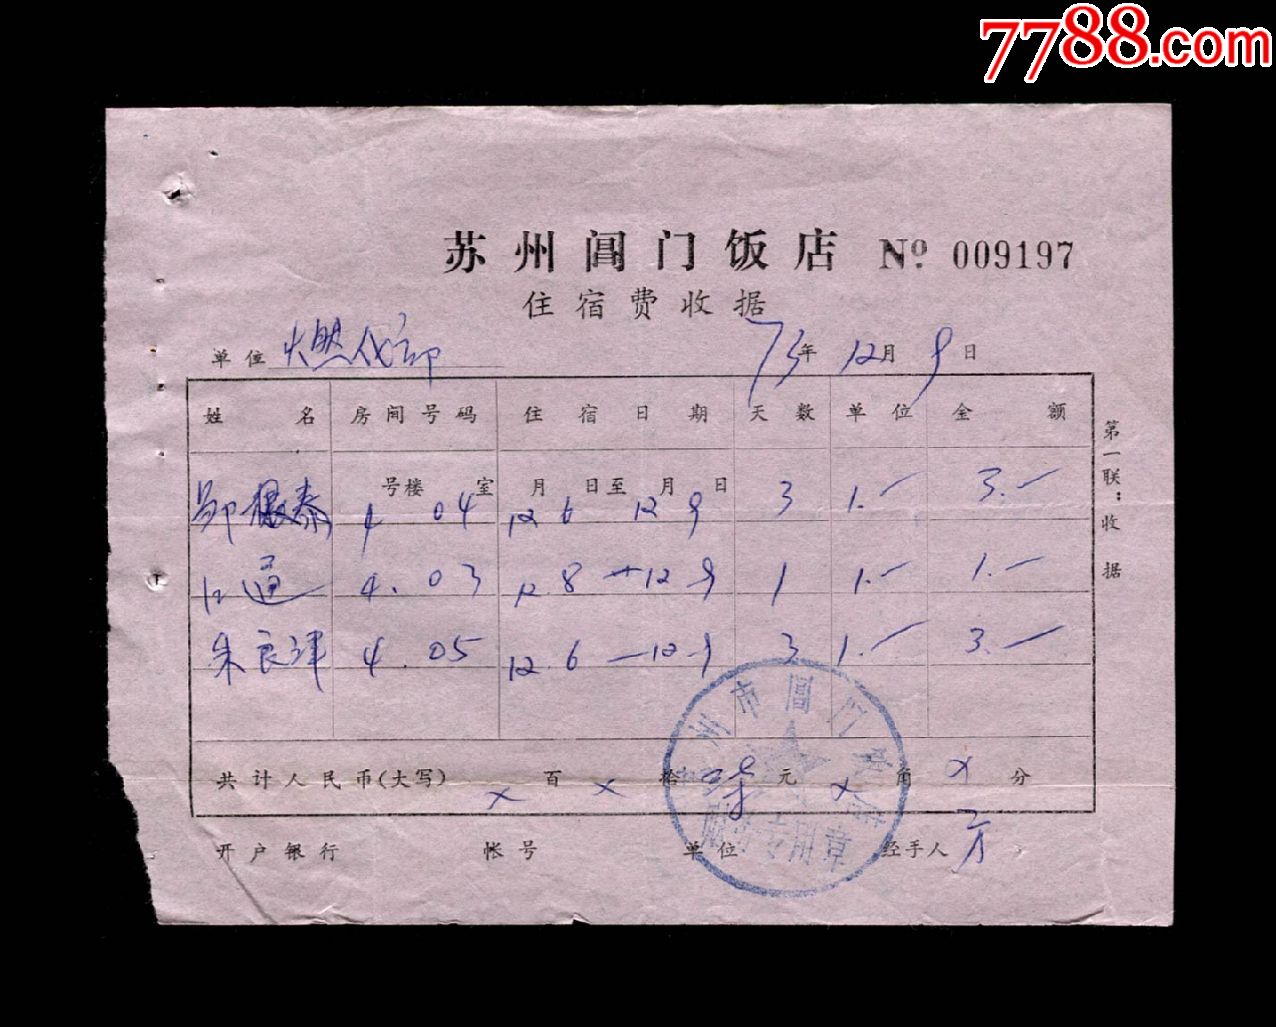 7788.com
苏州阊门饭店 № 009197
住宿费收据
单位 燃化部 73年 12月 9日
姓名 房间号码 住宿日期 天数 单位 金额
号楼 室 月 日至 月 日
邹 泰 4 04 12 6 12 9 3 1.- 3.-
江通 4. 03 12. 8 — 12 9 1 1.- 1.-
朱良津 4. 05 12. 6 — 12 9 3 1.- 3.-
共计人民币(大写) × 百 × 拾 柒 元 × 角 × 分
开户银行 帐号 单位 经手人
第一联：收据
州市阊门饭店
财务专用章